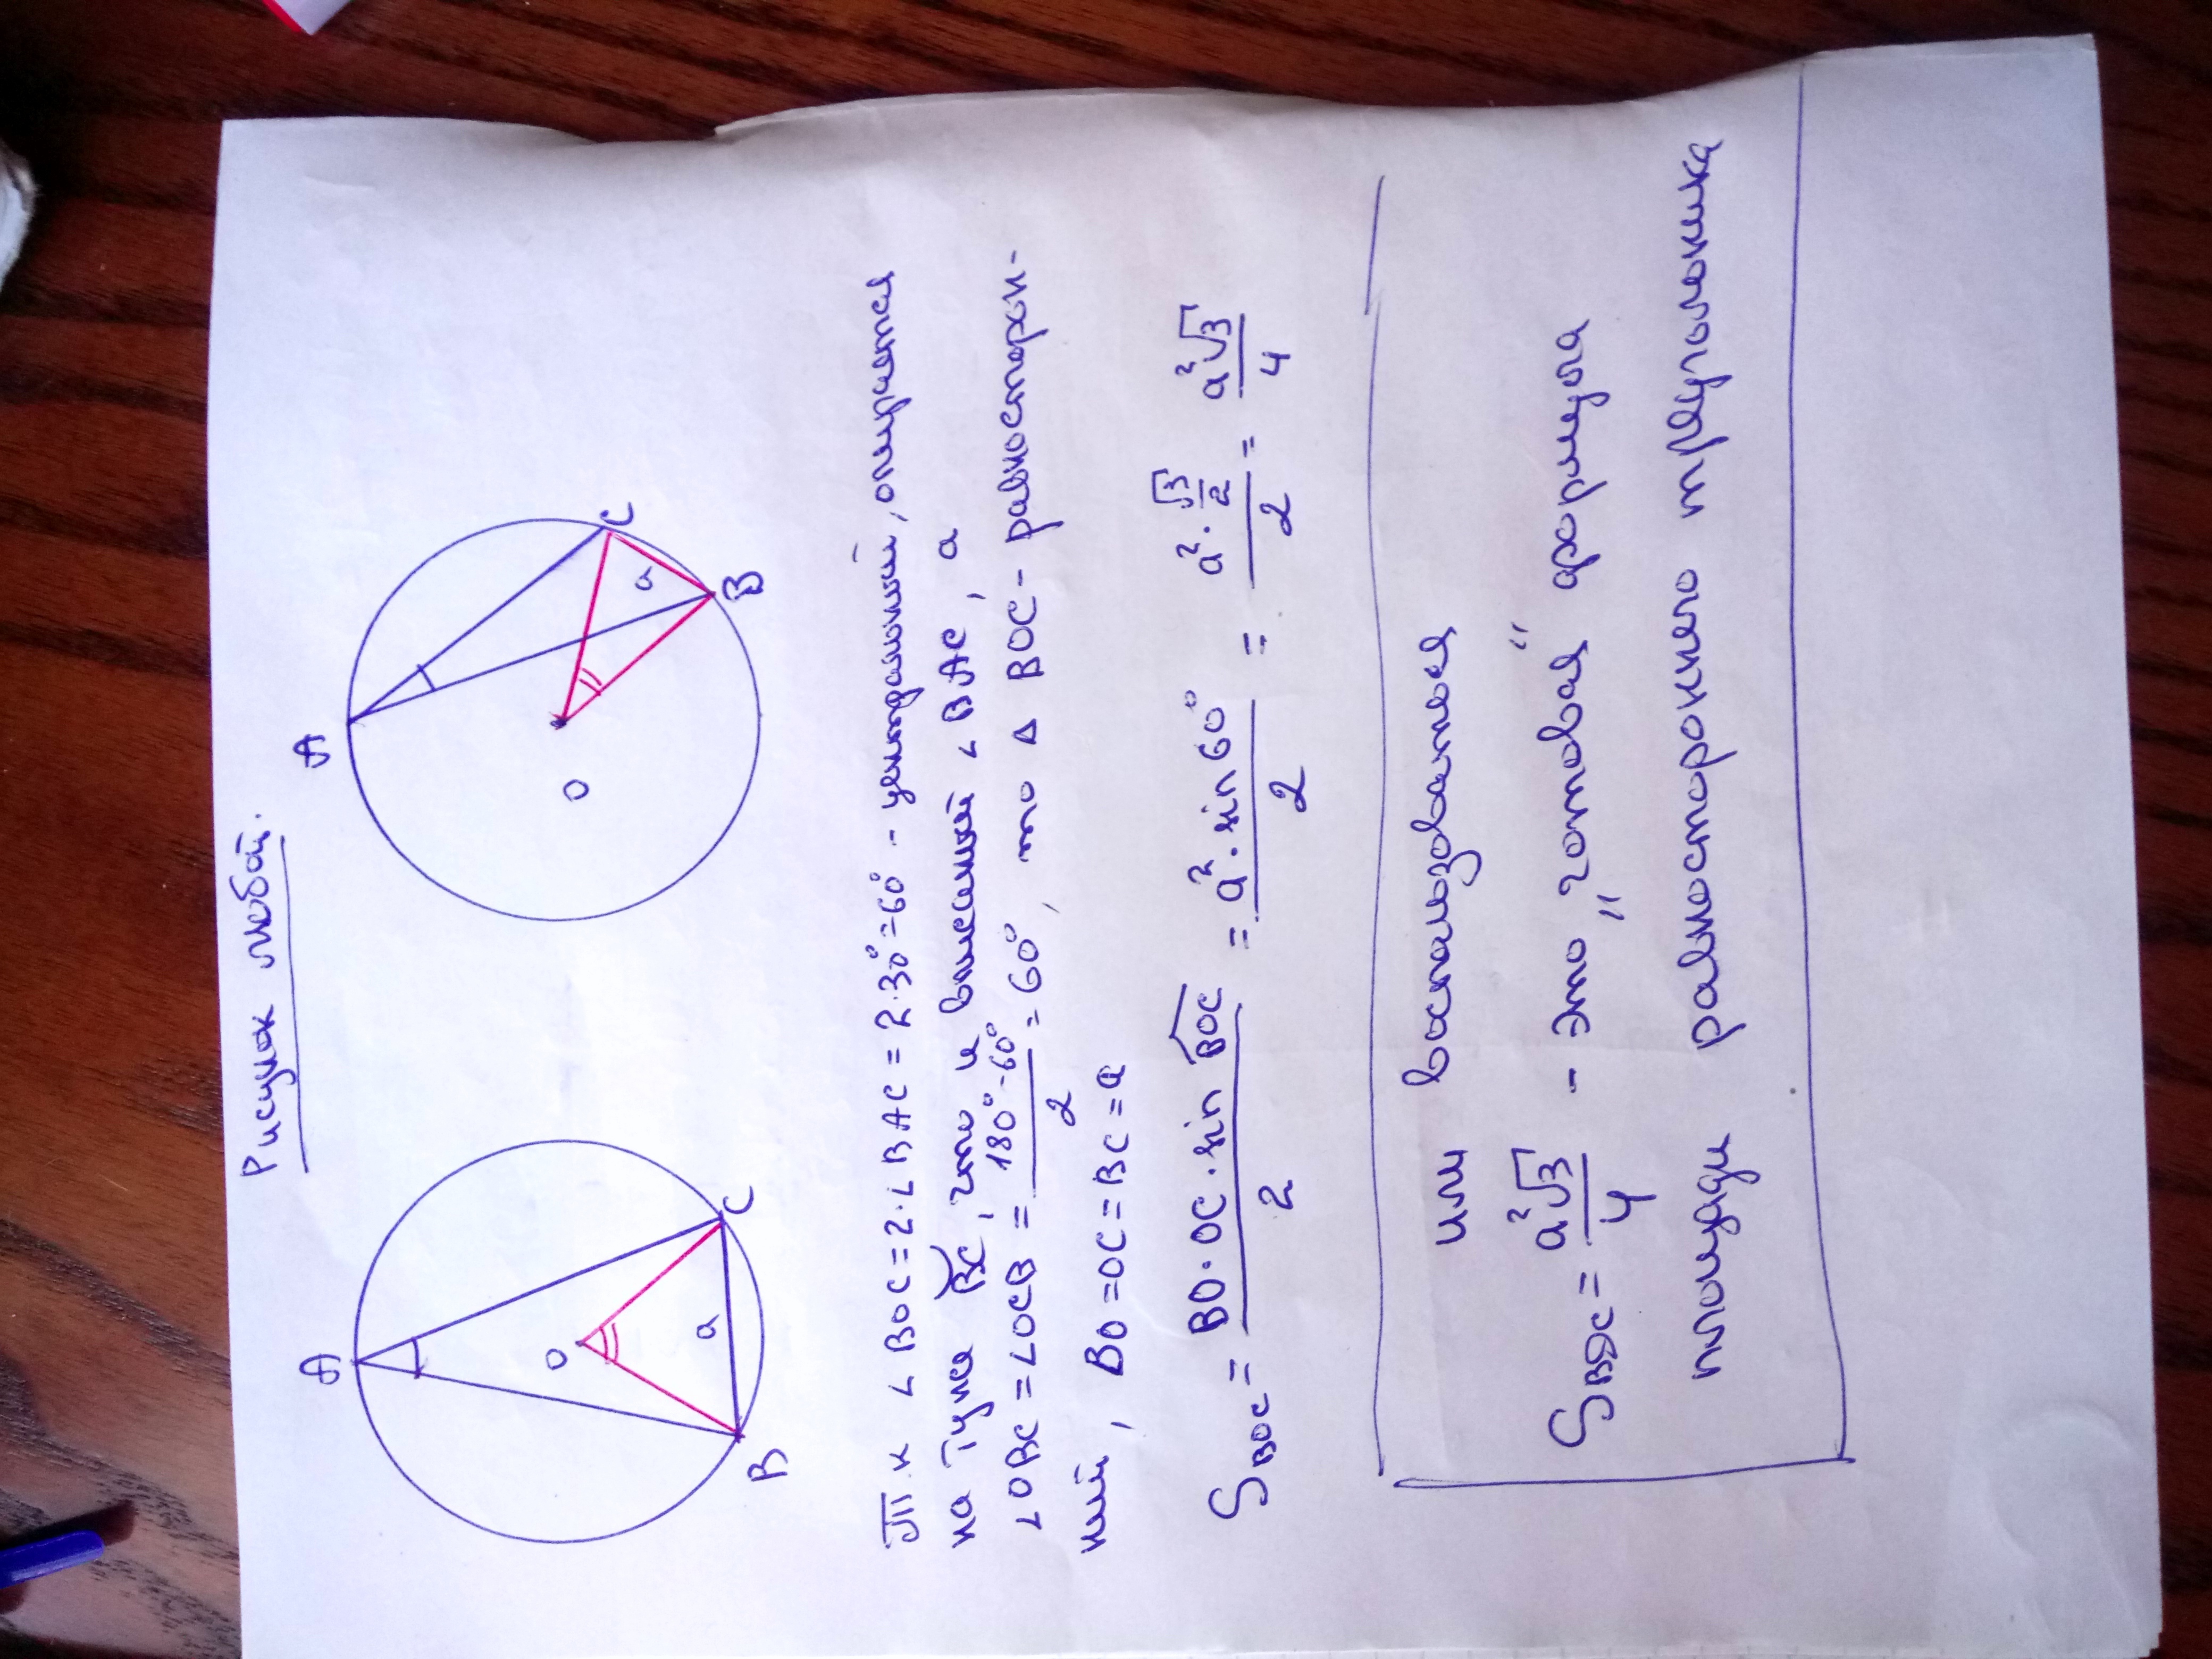 Рисунок любой.
A
O
a
B
C
A
O
a
C
B
Т.к ∠BOC=2·∠BAC=2·30°=60° - центральный, опирается
на дугу BC, что и вписанный ∠BAC, а
∠OBC=∠OCB=(180°-60°)/2=60°, то △BOC - равносторон-
ний, BO=OC=BC=a
S_BOC = (BO·OC·sin BOC)/2 = (a²·sin60°)/2 = (a²·√3/2)/2 = a²√3/4
или воспользоваться
S_BOC = a²√3/4 - это „готовая“ формула
площади равностороннего треугольника